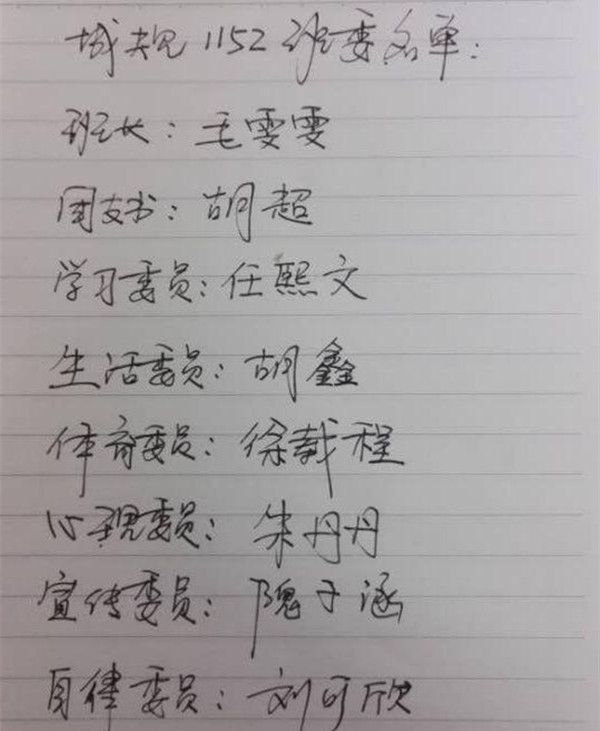 城规1152班委名单:
班长:毛雯雯
团支书:胡超
学习委员:任熙文
生活委员:胡鑫
体育委员:徐载程
心理委员:朱丹丹
宣传委员:隗子涵
自律委员:刘可欣